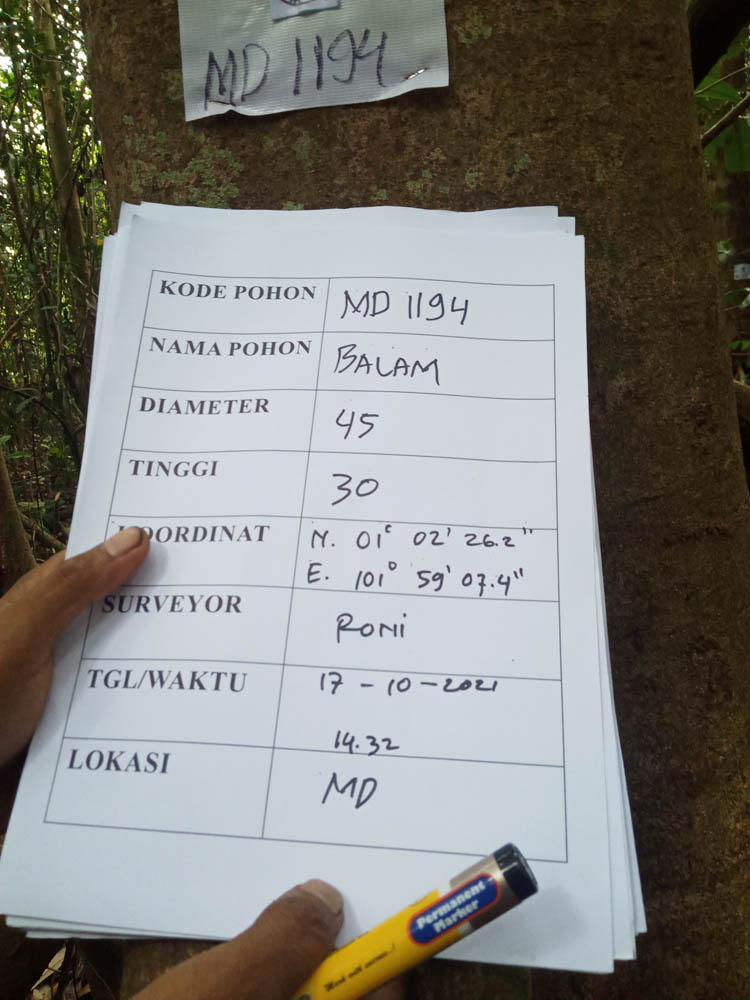 MD 1194
KODE POHON MD 1194
NAMA POHON BALAM
DIAMETER 45
TINGGI 30
KOORDINAT N. 01° 02' 26.2"
E. 101° 59' 07.4"
SURVEYOR RONI
TGL/WAKTU 17 - 10 - 2021
14.32
LOKASI MD
Permanent
Marker